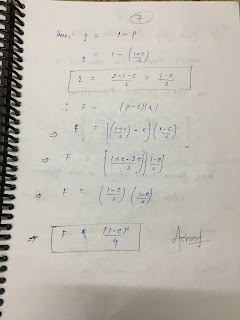 7
Now, q = 1 - P
q = 1 - (1+c/2)
q = 2-1-c/2 = 1-c/2
∴ F = (p-c)(q)
⇒ F = [(1+c/2) - c] (1-c/2)
⇒ F = [1+c-2c/2] [1-c/2]
⇒ F = (1-c/2) (1-c/2)
⇒ F = (1-c)²/4